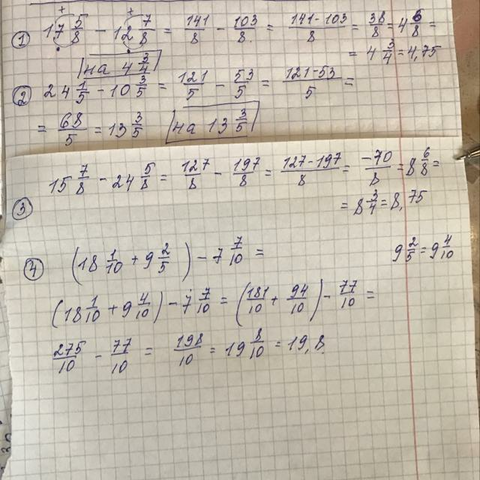 ① 17 5/8 - 12 7/8 = 141/8 - 103/8 = (141-103)/8 = 38/8 = 4 6/8 =
= 4 3/4 = 4,75
на 4 3/4
② 24 1/5 - 10 3/5 = 121/5 - 53/5 = (121-53)/5 =
= 68/5 = 13 3/5 на 13 3/5
③ 15 7/8 - 24 5/8 = 127/8 - 197/8 = (127-197)/8 = -70/8 = 8 6/8 =
= 8 3/4 = 8,75
④ (18 1/10 + 9 2/5) - 7 7/10 = 9 2/5 = 9 4/10
(18 1/10 + 9 4/10) - 7 7/10 = (181/10 + 94/10) - 77/10 =
275/10 - 77/10 = 198/10 = 19 8/10 = 19,8